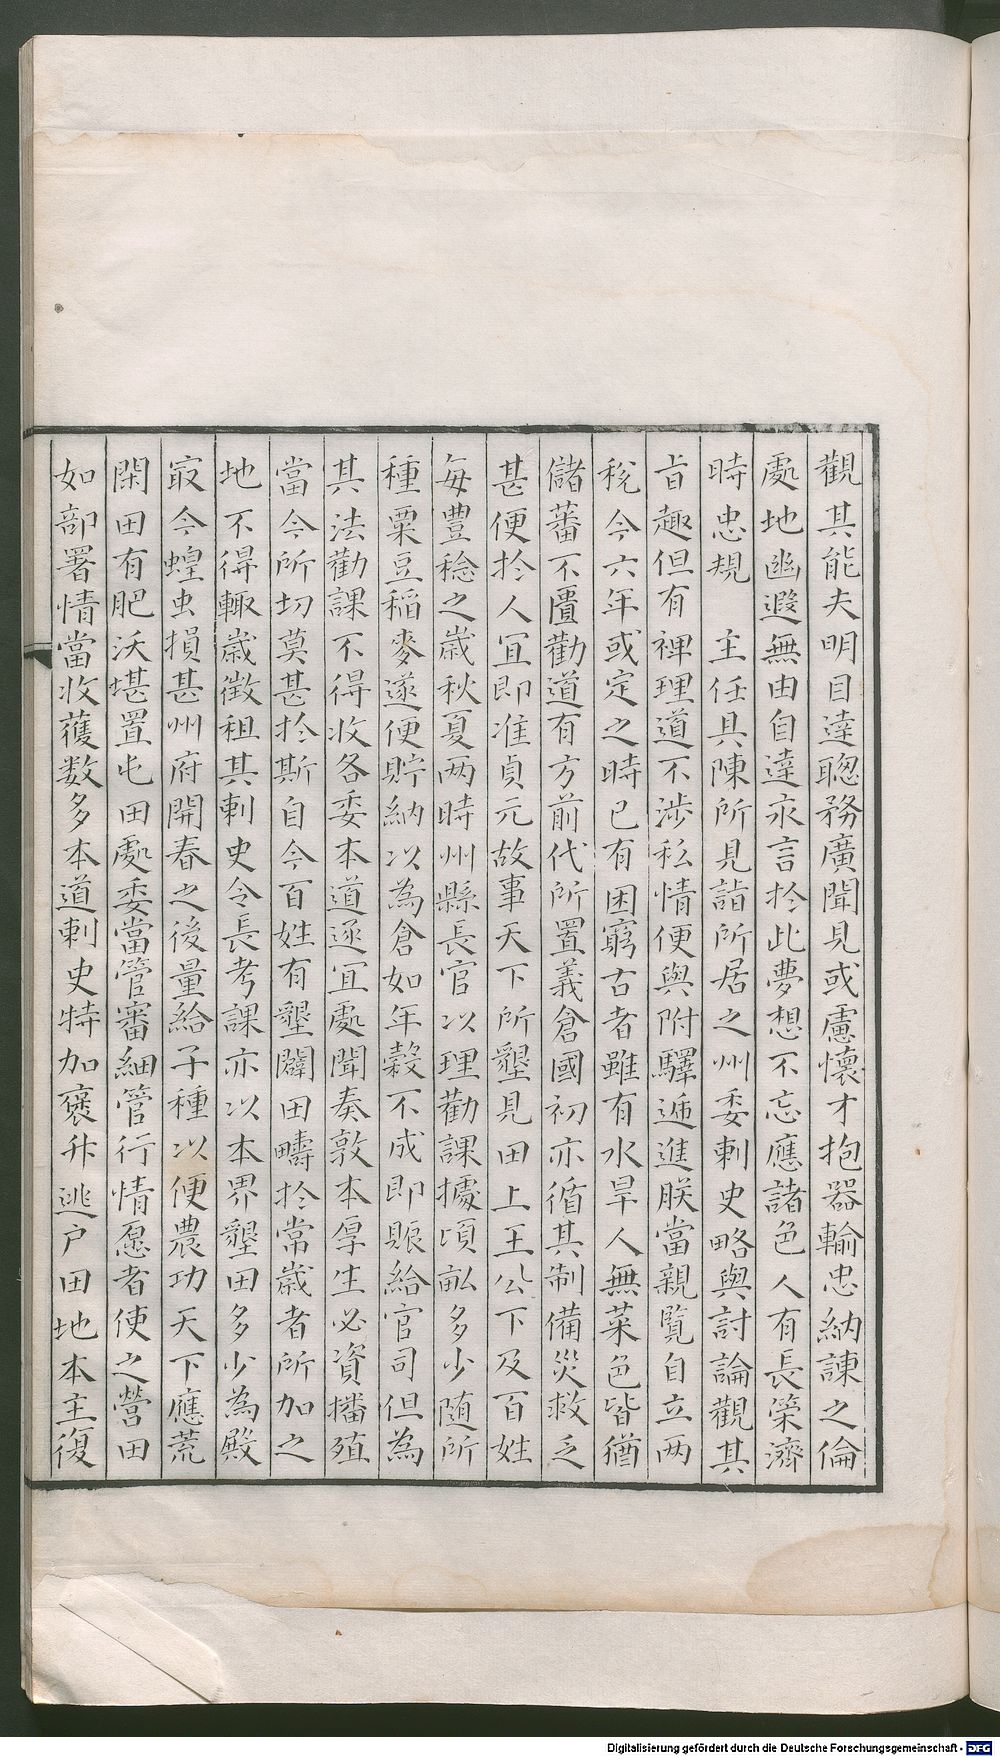 觀其能夫明目達聦務廣聞見或慮懷才抱器輸忠納諌之倫
處地幽遐無由自達永言扵此夢想不忘應諸色人有長筞濟
時忠規　主任具陳所見詣所居之州委刺史略與討論觀其
旨趣但有裨理道不渉私情便與附驛逓進朕當親覧自立两
稅今六年或定之時已有困窮古者雖有水旱人無菜色皆猶
儲蓄不匱勸道有方前代所置義倉國初亦循其制備災救乏
甚便扵人宜即准貞元故事天下所墾見田上王公下及百姓
每豊稔之歲秋夏两時州縣長官以理勸課據頃畝多少随所
種粟豆稻麥遂便貯納以為倉如年榖不成即賑給官司但為
其法勸課不得收各委本道逐宜處聞奏敦本厚生必資播殖
當今所切莫甚扵斯自今百姓有墾闢田疇扵常歲者所加之
地不得輙歲徴租其刺史令長考課亦以本界墾田多少為殿
㝡今蝗虫損甚州府開春之後量給子種以便農功天下應荒
閑田有肥沃堪置屯田處委當管審細管行情愿者使之營田
如部署情當收䕶数多本道刺史特加褒升逃户田地本主復
Digitalisierung gefördert durch die Deutsche Forschungsgemeinschaft - DFG